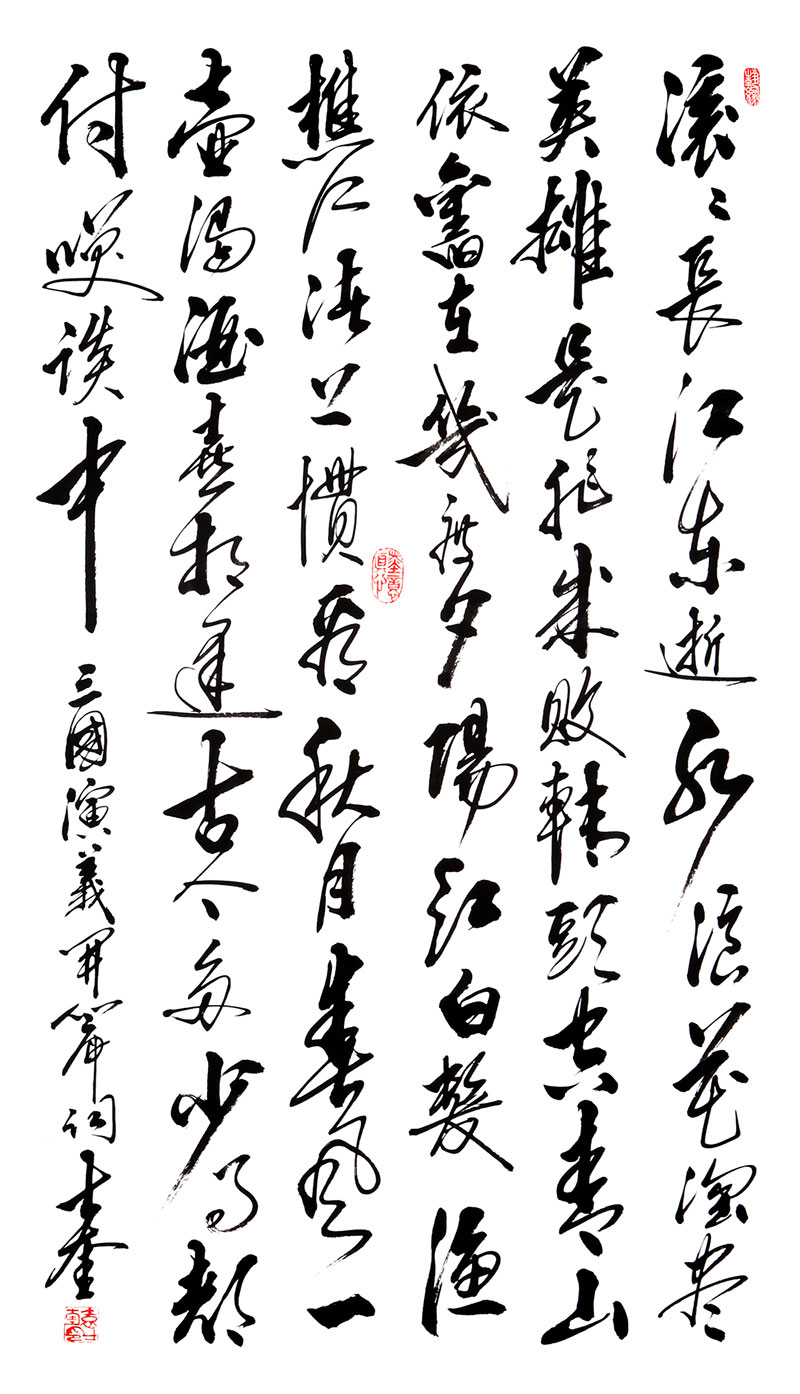 滚〻長江东逝水浪花淘尽
英雄是非成敗轉頭空青山
依舊在幾度夕陽紅白髮漁
樵江渚上慣看秋月春風一
壺濁酒喜相逢古今多少事都
付咲談中 三國演義開篇词 士奎